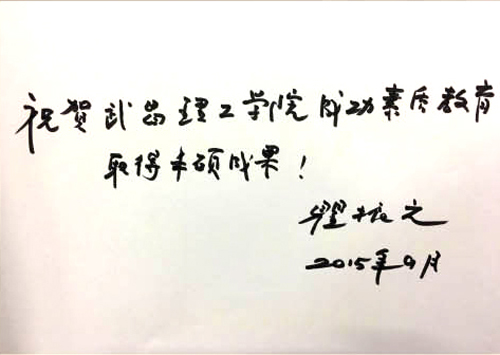 祝贺武昌理工学院成功素质教育
取得丰硕成果！
瞿振元
2015年9月